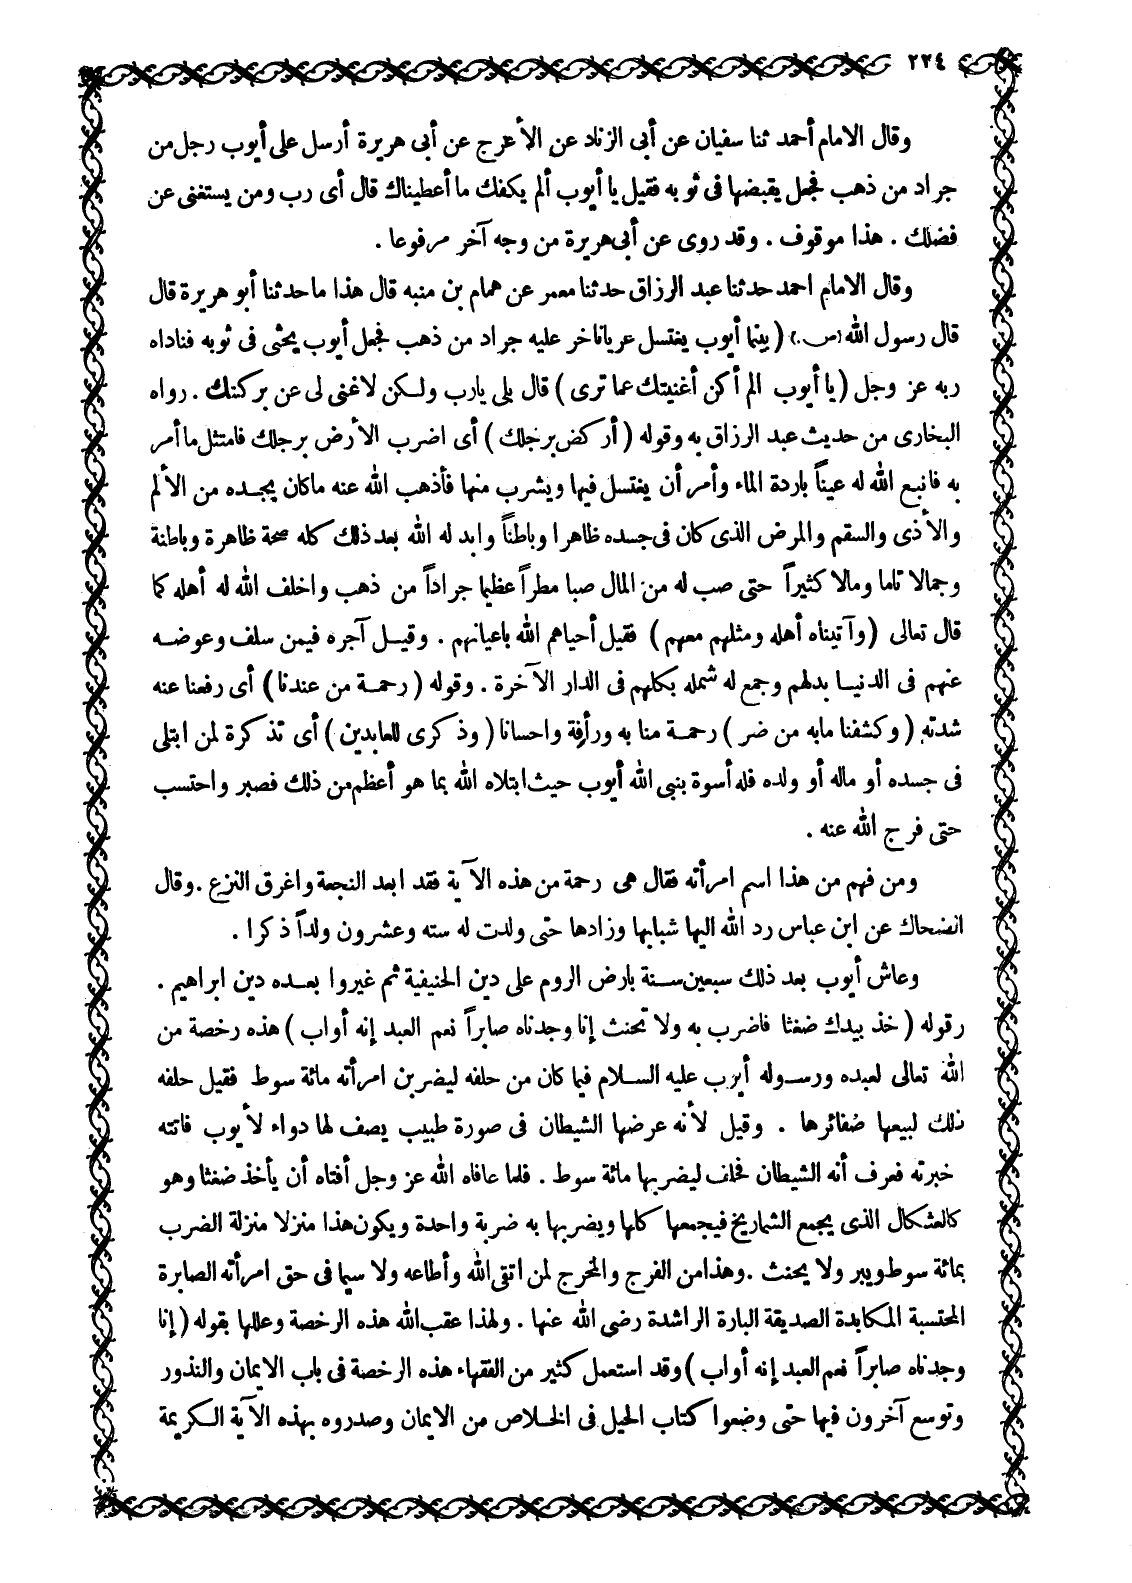 ٢٢٤
وقال الامام أحمد ثنا سفيان عن أبى الزناد عن الأعرج عن أبى هريرة أرسل على أيوب رجل من
جراد من ذهب فجعل يقبضها فى ثوبه فقيل يا أيوب ألم يكفك ما أعطيناك قال أى رب ومن يستغنى عن
فضلك . هذا موقوف . وقد روى عن أبى هريرة من وجه آخر مرفوعا .
وقال الامام احمد حدثنا عبد الرزاق حدثنا معمر عن همام بن منبه قال هذا ما حدثنا أبو هريرة قال
قال رسول الله (ص.) ( بينما أيوب يغتسل عريانا خر عليه جراد من ذهب فجعل أيوب يحثى فى ثوبه فناداه
ربه عز وجل ( يا أيوب الم أكن أغنيتك عما ترى ) قال بلى يارب ولكن لا غنى لى عن بركتك . رواه
البخارى من حديث عبد الرزاق به وقوله ( أركض برجلك ) أى اضرب الأرض برجلك فامتثل ما أمر
به فانبع الله له عيناً باردة الماء وأمر أن يغتسل فيها ويشرب منها فأذهب الله عنه ماكان يجده من الألم
والأذى والسقم والمرض الذى كان فى جسده ظاهرا وباطناً وابد له الله بعد ذلك كله صحة ظاهرة وباطنة
وجمالا تاما ومالا كثيراً حتى صب له من المال صبا مطراً عظيما جراداً من ذهب واخلف الله له أهله كما
قال تعالى ( وآتيناه أهله ومثلهم معهم ) فقيل أحياهم الله باعيانهم . وقيل آجره فيمن سلف وعوضه
عنهم فى الدنيا بدلهم وجمع له شمله بكلهم فى الدار الآخرة . وقوله ( رحمة من عندنا ) أى رفعنا عنه
شدته ( وكشفنا مابه من ضر ) رحمة منا به ورأفة واحسانا ( وذكرى للعابدين ) أى تذكرة لمن ابتلى
فى جسده أو ماله أو ولده فله أسوة بنبى الله أيوب حيث ابتلاه الله بما هو أعظم من ذلك فصبر واحتسب
حتى فرج الله عنه .
ومن فهم من هذا اسم امرأته فقال هى رحمة من هذه الآية فقد ابعد النجعة واغرق النزع . وقال
الضحاك عن ابن عباس رد الله اليها شبابها وزادها حتى ولدت له سته وعشرون ولداً ذكرا .
وعاش أيوب بعد ذلك سبعين سنة بارض الروم على دين الحنيفية ثم غيروا بعده دين ابراهيم .
وقوله ( خذ بيدك ضغثا فاضرب به ولا تحنث إنا وجدناه صابراً نعم العبد إنه أواب ) هذه رخصة من
الله تعالى لعبده ورسوله أيوب عليه السلام فيما كان من حلفه ليضربن امرأته مائة سوط فقيل حلفه
ذلك لبيعها ضفائرها . وقيل لأنه عرضها الشيطان فى صورة طبيب يصف لها دواء لأيوب فاتته
خبرته فعرف أنه الشيطان فحلف ليضربها مائة سوط . فلما عافاه الله عز وجل أفتاه أن يأخذ ضغثا وهو
كالعشكال الذى يجمع الشماريخ فيجمعها كلها ويضربها به ضربة واحدة ويكون هذا منزلا منزلة الضرب
بمائة سوط ويبر ولا يحنث . وهذا من الفرج والمخرج لمن اتقى الله وأطاعه ولا سيما فى حق امرأته الصابرة
المحتسبة المكابدة الصديقة البارة الراشدة رضى الله عنها . ولهذا عقب الله هذه الرخصة وعللها بقوله ( إنا
وجدناه صابراً نعم العبد إنه أواب ) وقد استعمل كثير من الفقهاء هذه الرخصة فى باب الايمان والنذور
وتوسع آخرون فيها حتى وضعوا كتاب الحيل فى الخلاص من الايمان وصدروه بهذه الآية الكريمة